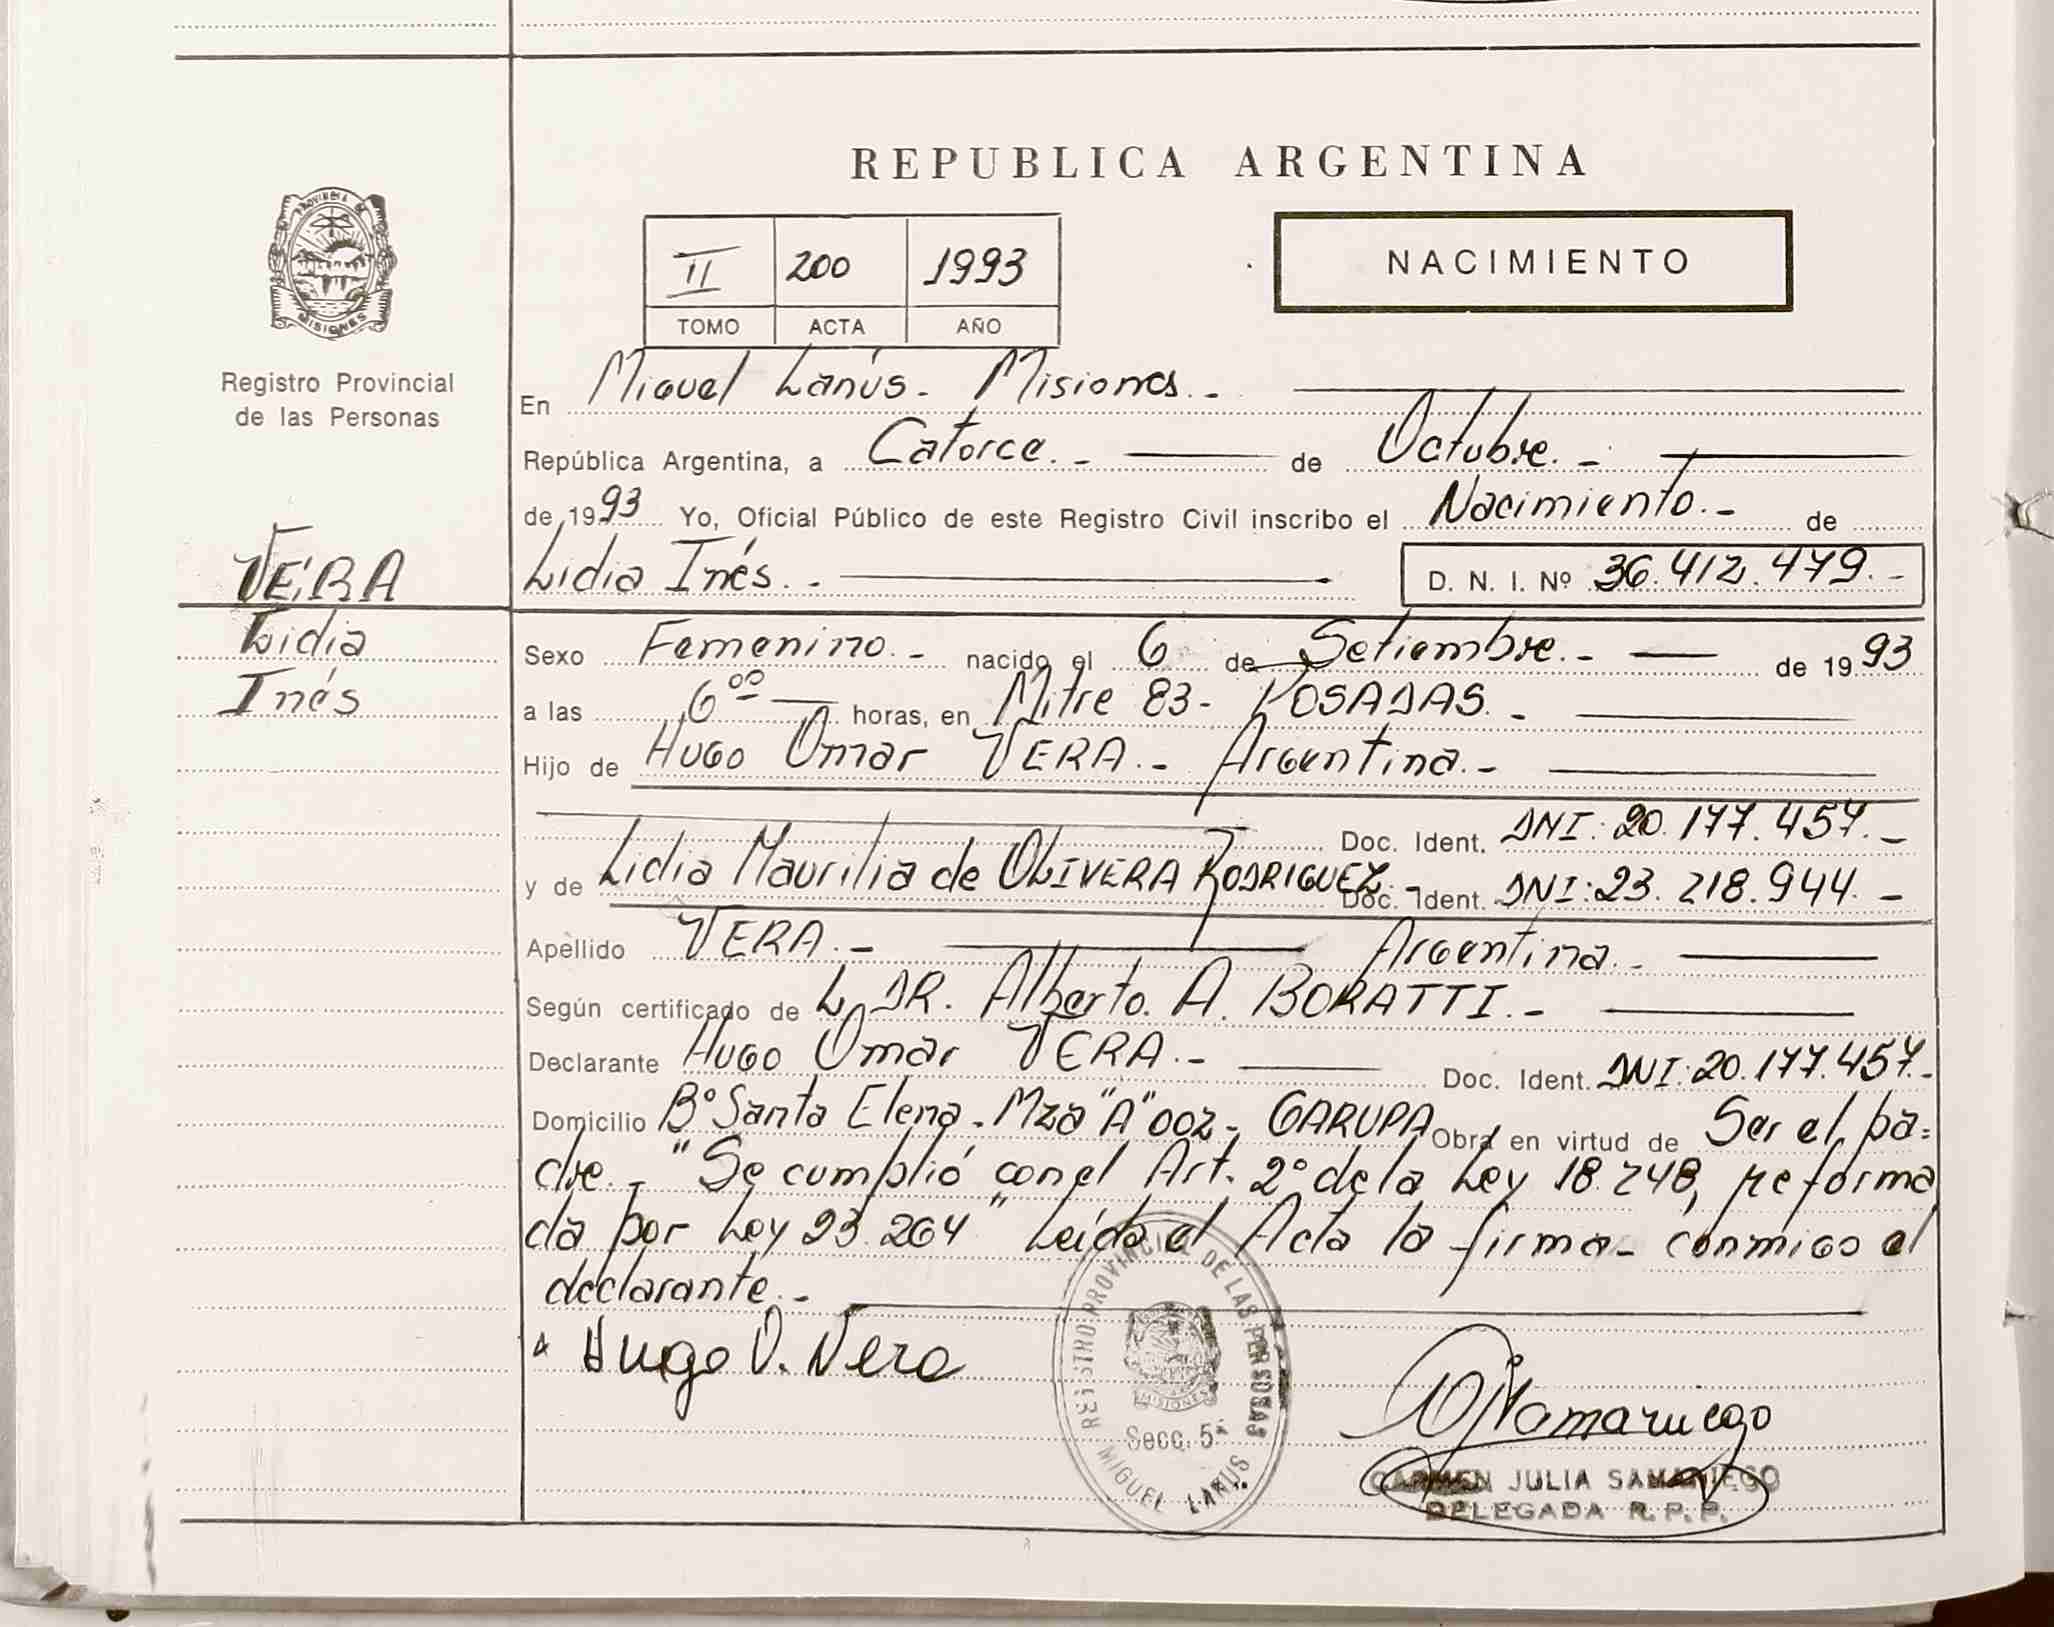 REPUBLICA ARGENTINA
II 200 1993
TOMO ACTA AÑO
NACIMIENTO
PROVINCIA DE
MISIONES
Registro Provincial
de las Personas
VERA
Lidia
Inés
En Miguel Lanús.- Misiones.-
República Argentina, a Catorce.- de Octubre.-
de 1993 Yo, Oficial Público de este Registro Civil inscribo el Nacimiento.- de
Lidia Inés.- D. N. I. Nº 36.412.479.-
Sexo Femenino.- nacido el 6 de Setiembre.- de 1993
a las 6 00 horas, en Mitre 83- POSADAS.-
Hijo de Hugo Omar VERA.- Argentina.-
Doc. Ident. DNI: 20.177.457.-
y de Lidia Maurilia de OLIVERA RODRIGUEZ.- Doc. Ident. DNI: 23.218.944.-
Apellido VERA.- Argentina.-
Según certificado de L. DR. Alberto. A. BORATTI.-
Declarante Hugo Omar VERA.- Doc. Ident. DNI: 20.177.457.-
Domicilio Bº Santa Elena.- Mza "A" 002- GARUPA Obra en virtud de Ser el pa=
dre.- "Se cumplió con el Art. 2º de la Ley 18.248, reforma
da por Ley 23.264" Leída el Acta la firma- conmigo el
declarante.-
Hugo O. Vera
REGISTRO PROVINCIAL DE LAS PERSONAS
Secc. 5ª
MIGUEL LANUS
CJSamaniego
CARMEN JULIA SAMANIEGO
DELEGADA R. P. P.